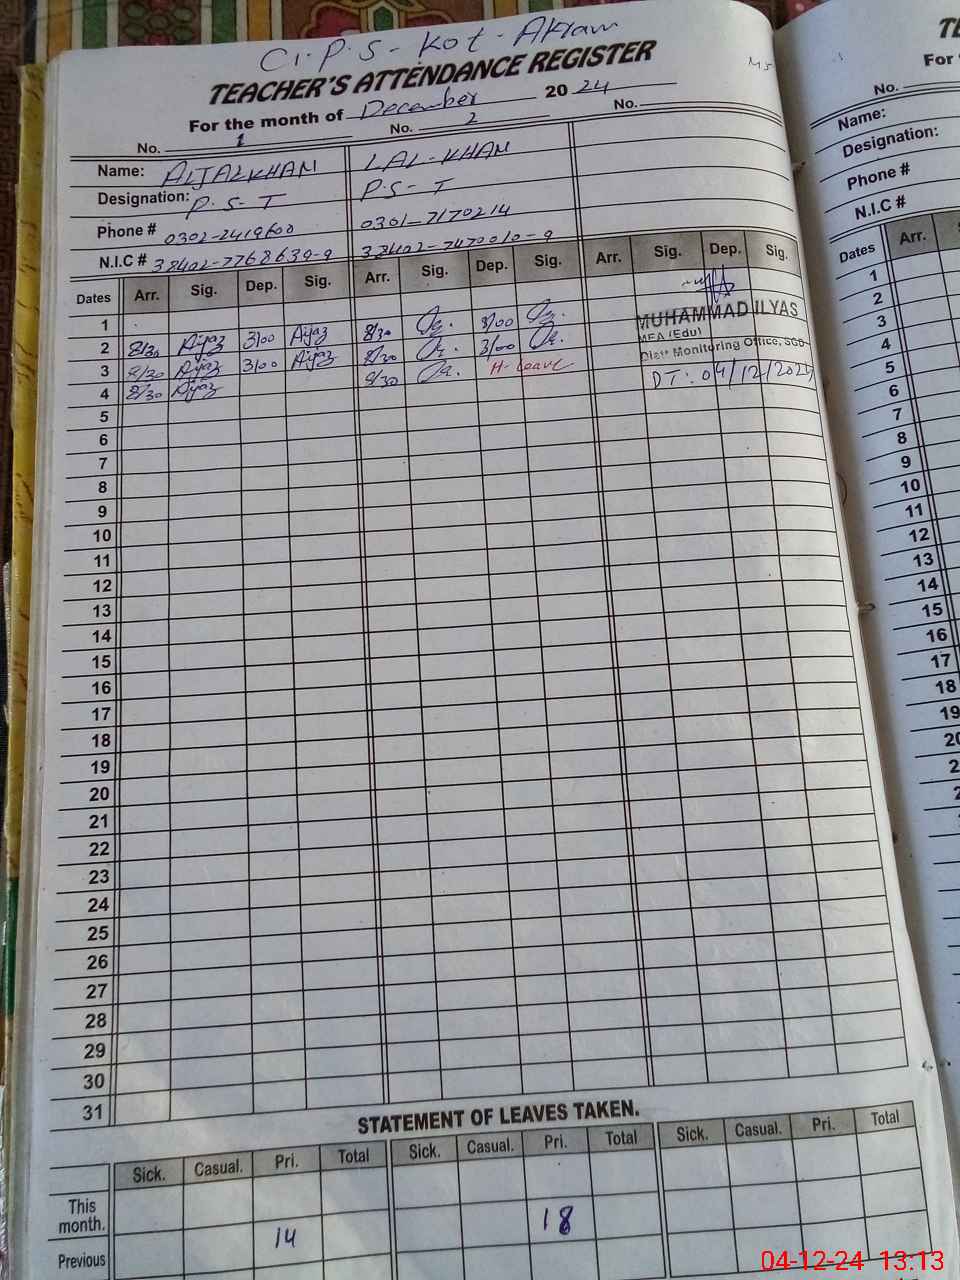 G.P.S - Kot - Akram
TEACHER'S ATTENDANCE REGISTER
For the month of December 20 24
No. 1 No. 2 No.
Name: AIJAZ KHAN LAL - KHAN
Designation: P.S-T P.S-T
Phone # 0302-2419600 0301-7170214
N.I.C # 38402-7768639-9 38402-7470010-9
Dates Arr. Sig. Dep. Sig. Arr. Sig. Dep. Sig. Arr. Sig. Dep. Sig.
1
2 8/30 Aijaz 3/00 Aijaz 8/30 3/00
3 8/30 Aijaz 3/00 Aijaz 8/30 3/00
4 8/30 Aijaz 8/30 H-leave
MUHAMMAD ILYAS
MEA (Edu)
Distt Monitoring Office, SGD
DT: 04/12/2024
5
6
7
8
9
10
11
12
13
14
15
16
17
18
19
20
21
22
23
24
25
26
27
28
29
30
31
STATEMENT OF LEAVES TAKEN.
Sick. Casual. Pri. Total Sick. Casual. Pri. Total Sick. Casual. Pri. Total
This
month.
Previous 14 18
For
No.
Name:
Designation:
Phone #
N.I.C #
Dates Arr.
1
2
3
4
5
6
7
8
9
10
11
12
13
14
15
16
17
18
19
20
04-12-24 13:13